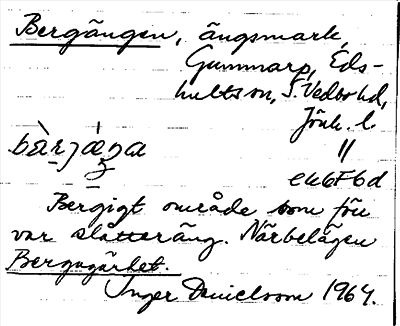 Bergängen, ängsmark,
Gummarp, Eds-
hultssn, S. Vedbo hd,
Jönk. l.
"
ek6F6d
Bergigt område som förr
var slåtteräng. Närbelägen
Bergagärdet.
Inger Danielsson 1964.